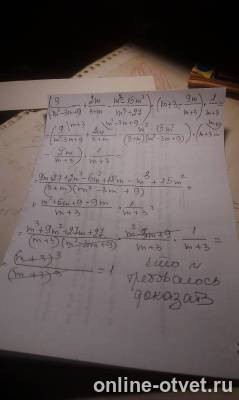 (9/(m²-3m+9) + 2m/(3+m) - (m³-15m²)/(m³+27)) · (m+3 - 9m/(m+3)) · 1/(m+3) =
= (9/(m²-3m+9) + 2m/(3+m) - (m³-15m²)/((3+m)(m²-3m+9))) · (m+3 -
- 9m/(m+3)) · 1/(m+3) =
= (9m+27+2m³-6m²+18m-m³+15m²)/((3+m)(m²-3m+9)) ·
· (m²+6m+9-9m)/(m+3) · 1/(m+3) =
= (m³+9m²+27m+27)/((m+3)(m²-3m+9)) · (m²-3m+9)/(m+3) · 1/(m+3) =
= (m+3)³/(m+3)³ = 1
что и
требовалось
доказать
online-otvet.ru